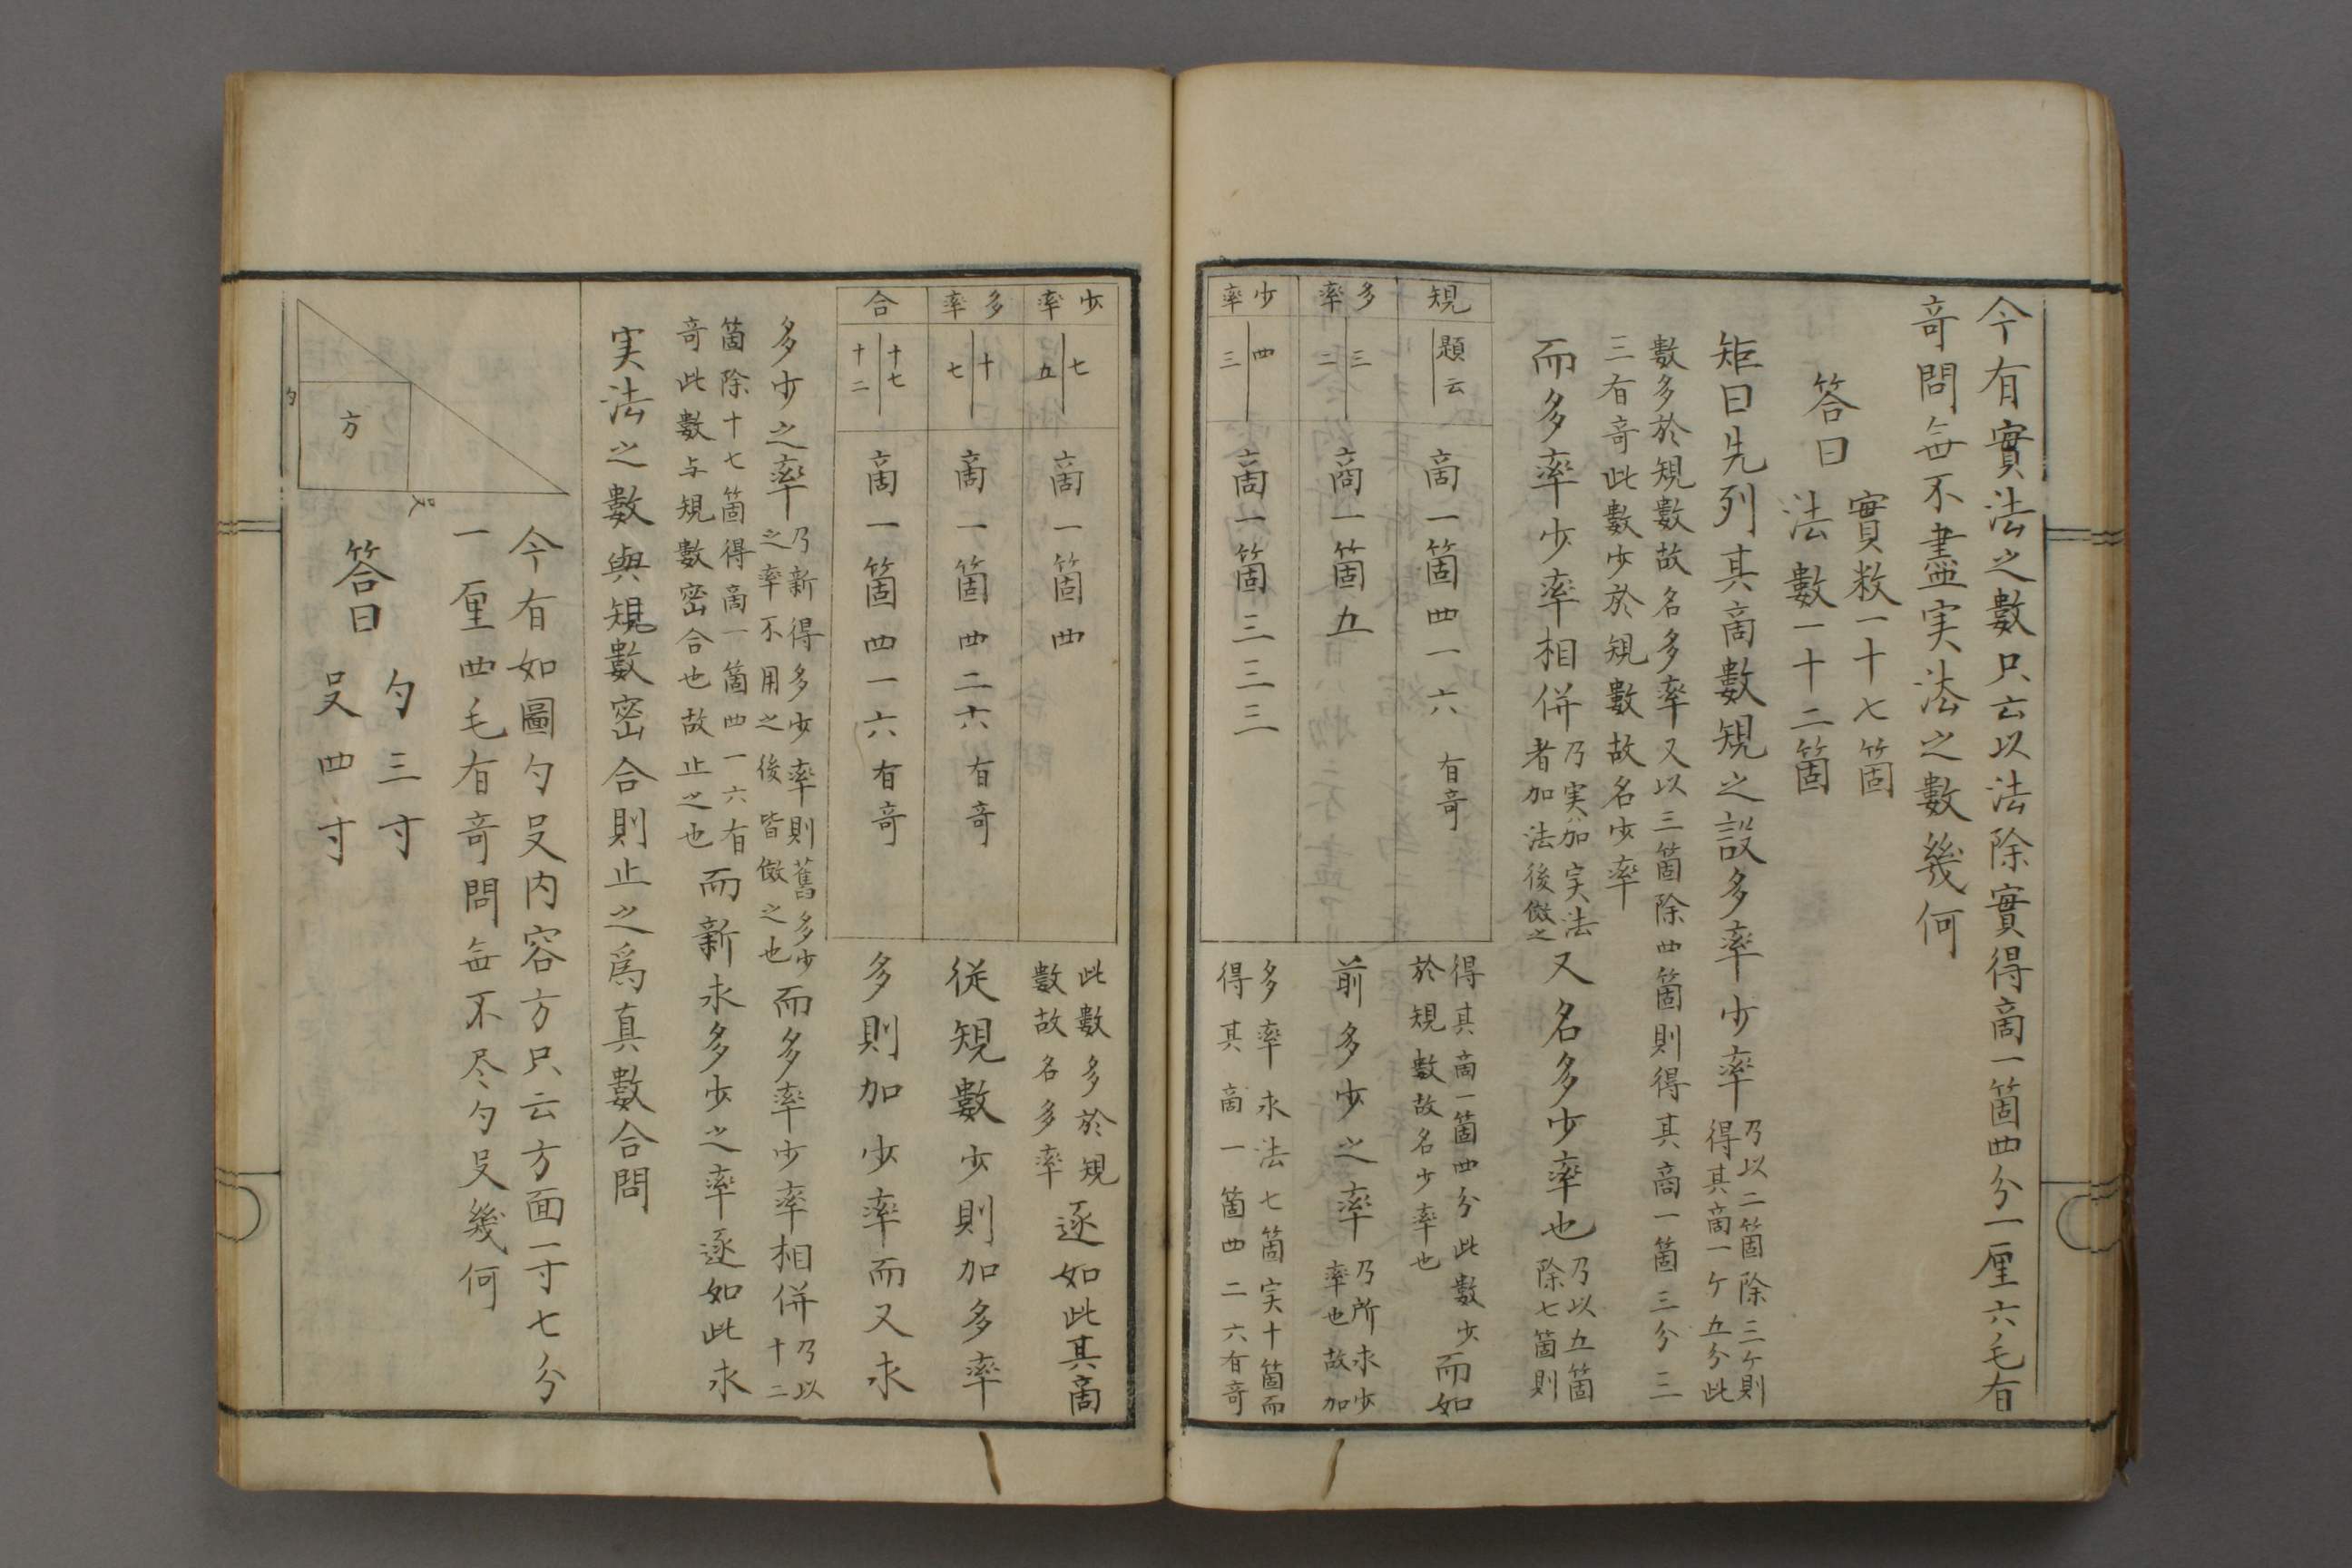 今有實法之數只云以法除實得啇一箇四分一厘六毛有
奇問每不盡実法之數幾何
答曰
實敉一十七箇
法數一十二箇
矩曰先列其啇數規之設多率少率
乃以二箇除三ケ則
得其啇一ケ五分此
數多於規數故名多率又以三箇除四箇則得其商一箇三分三
三有奇此數少於規數故名少率
而多率少率相併
乃実加実法
者加法後倣之
又名多少率也
乃以五箇
除七箇則
規
題云
啇一箇四一六有奇
得其啇一箇四分此數少
於規數故名少率也
而如
多率
三
二
商一箇五
前多少之率
乃所求少
率也故加
少率
四
三
啇一箇三三三
多率求法七箇実十箇而
得其啇一箇四二六有奇
少率
七
五
啇一箇四
此數多於規
數故名多率
逐如此其啇
多率
十
七
啇一箇四二六有奇
従規數少則加多率
合
十七
十二
啇一箇四一六有奇
多則加少率而又求
多少之率
乃新得多少率則舊多少
之率不用之後皆倣之也
而多率少率相併
乃以
十二
箇除十七箇得啇一箇四一六有
奇此數与規數密合也故止之也
而新求多少之率逐如此求
実法之數與規數密合則止之爲真數合問
方
勺
㕝
今有如圖勺㕝内容方只云方面一寸七分
一厘四毛有奇問每不尽勺㕝幾何
答曰
勺三寸
㕝四寸